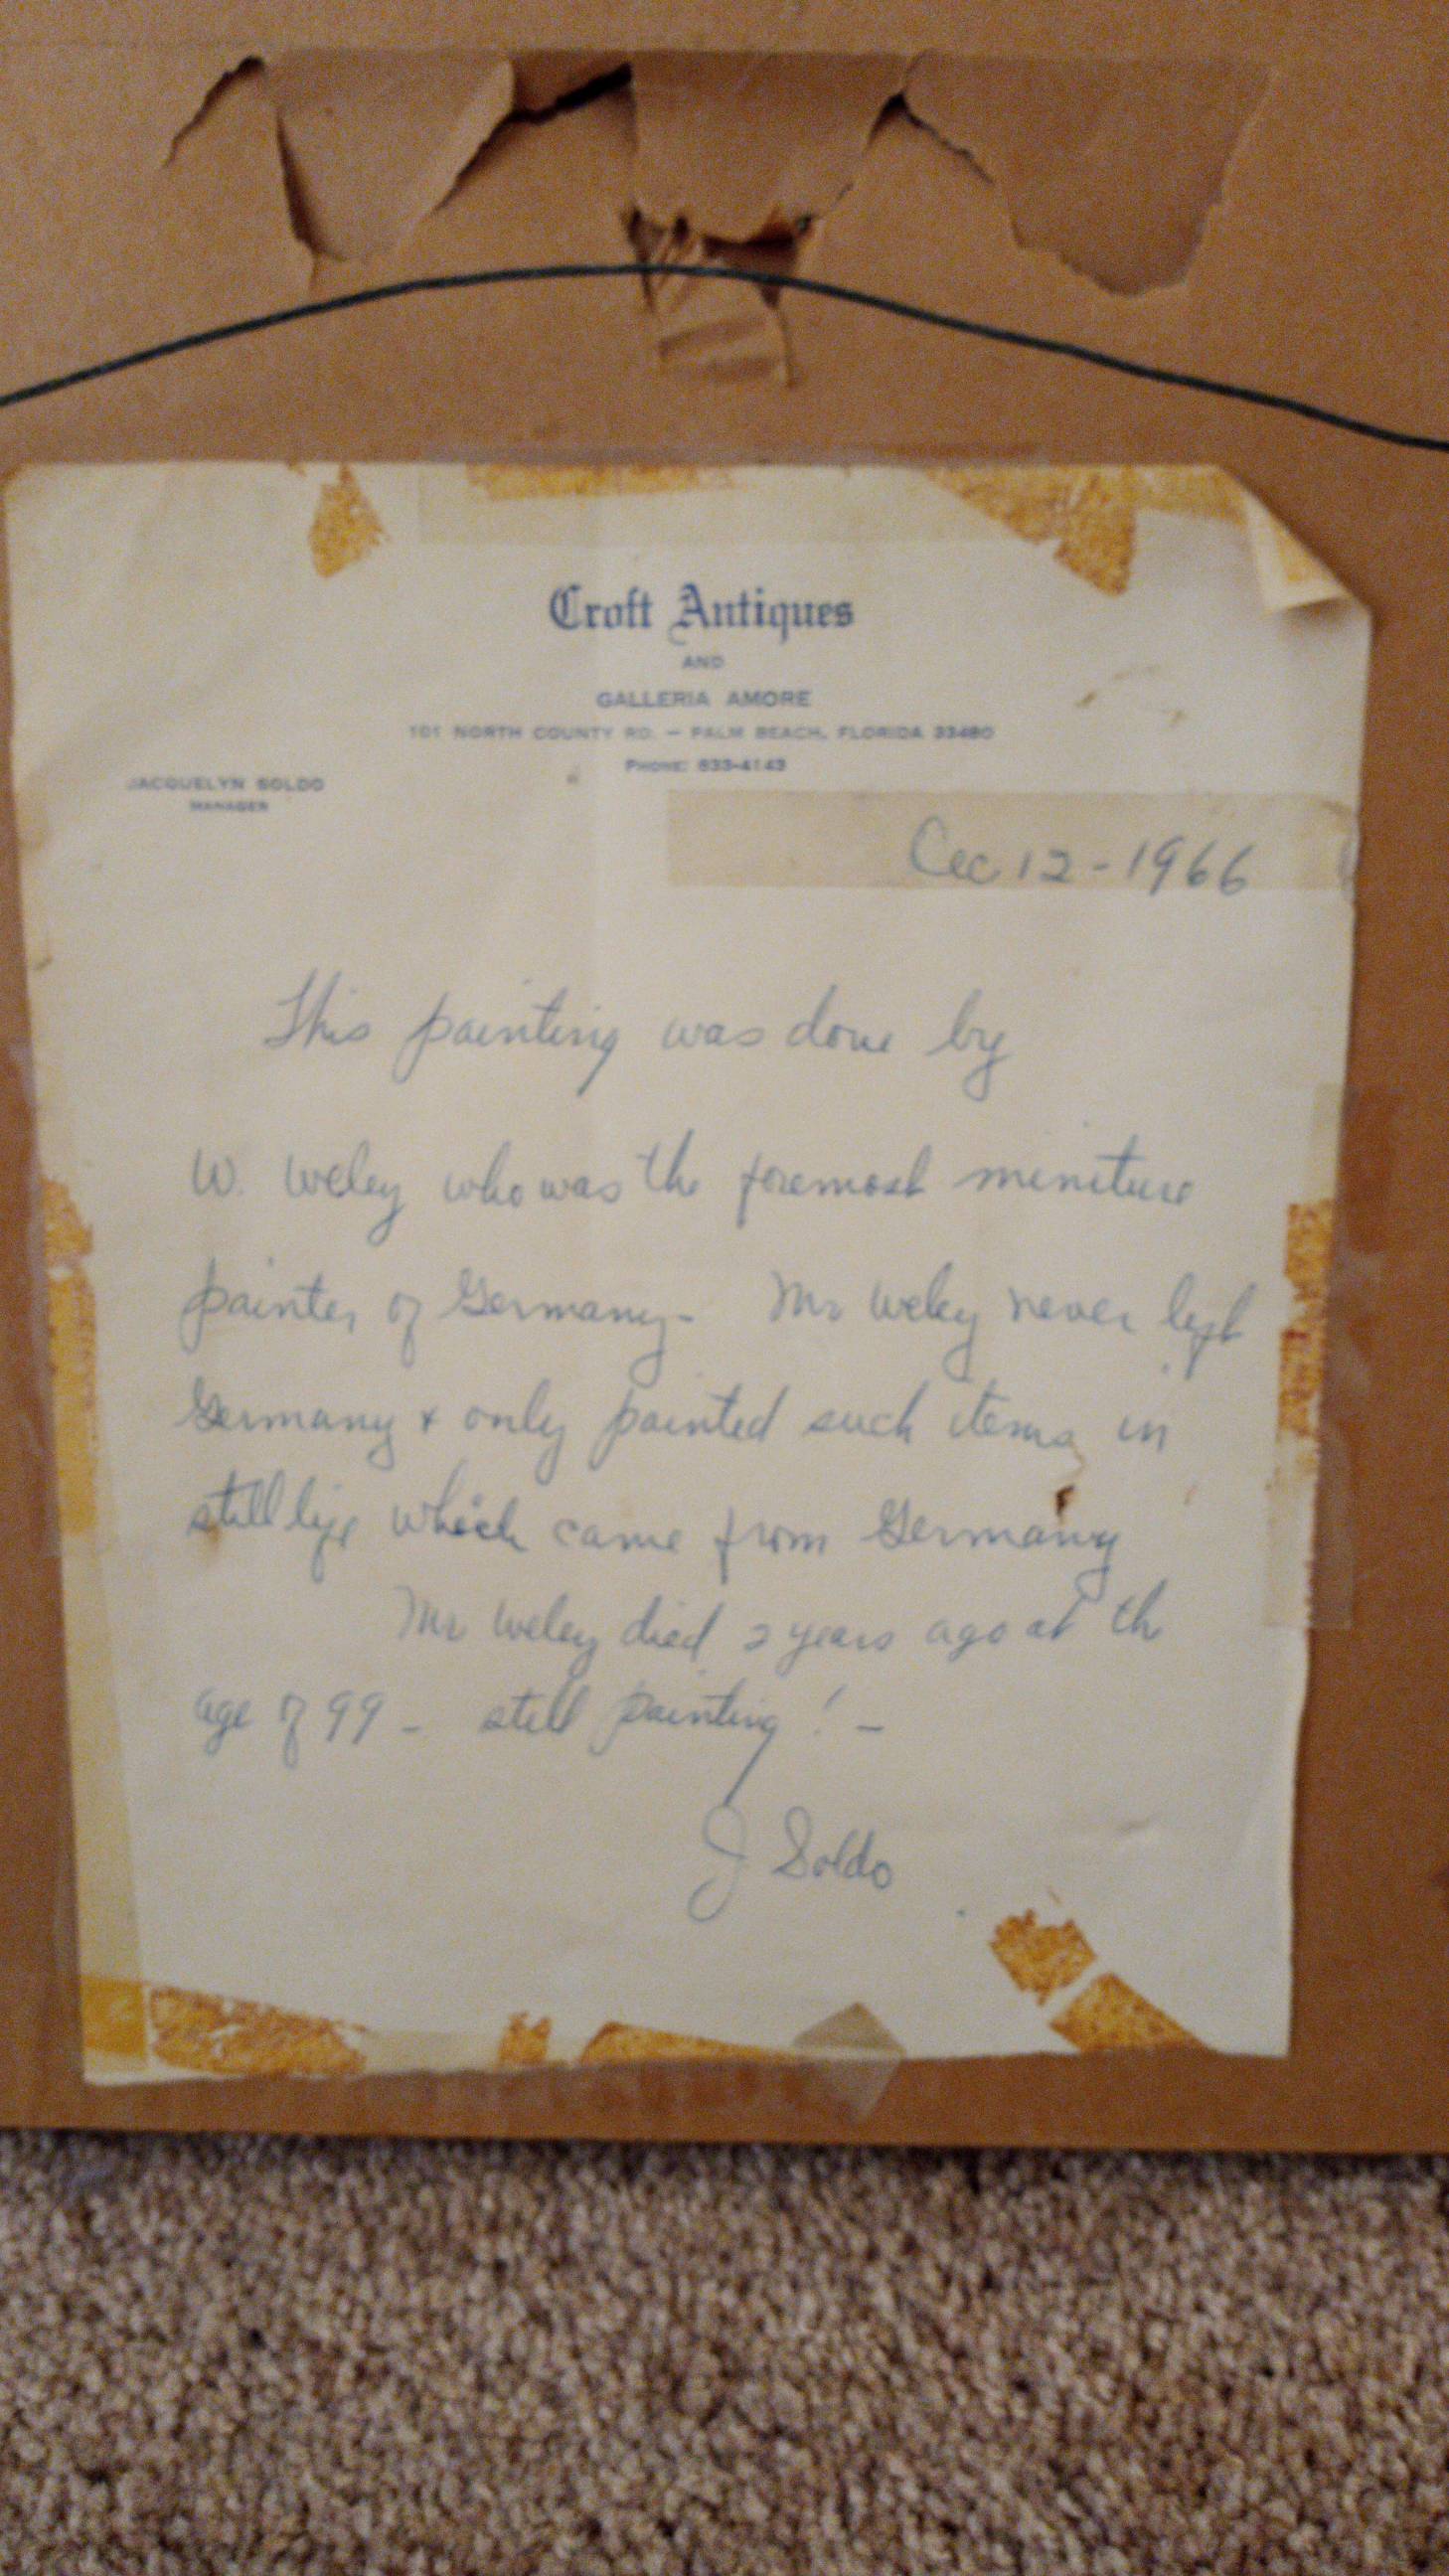 Croft Antiques
AND
GALLERIA AMORE
101 NORTH COUNTY RD. — PALM BEACH, FLORIDA 33480
PHONE: 833-4143
JACQUELYN SOLDO
MANAGER
Dec 12 - 1966
This painting was done by
W. Weley who was the foremost meniture
painter of Germany - Mr Weley never left
Germany & only painted such items in
still life which came from Germany
Mr Weley died 2 years ago at th
age of 99 - still painting! -
J Soldo